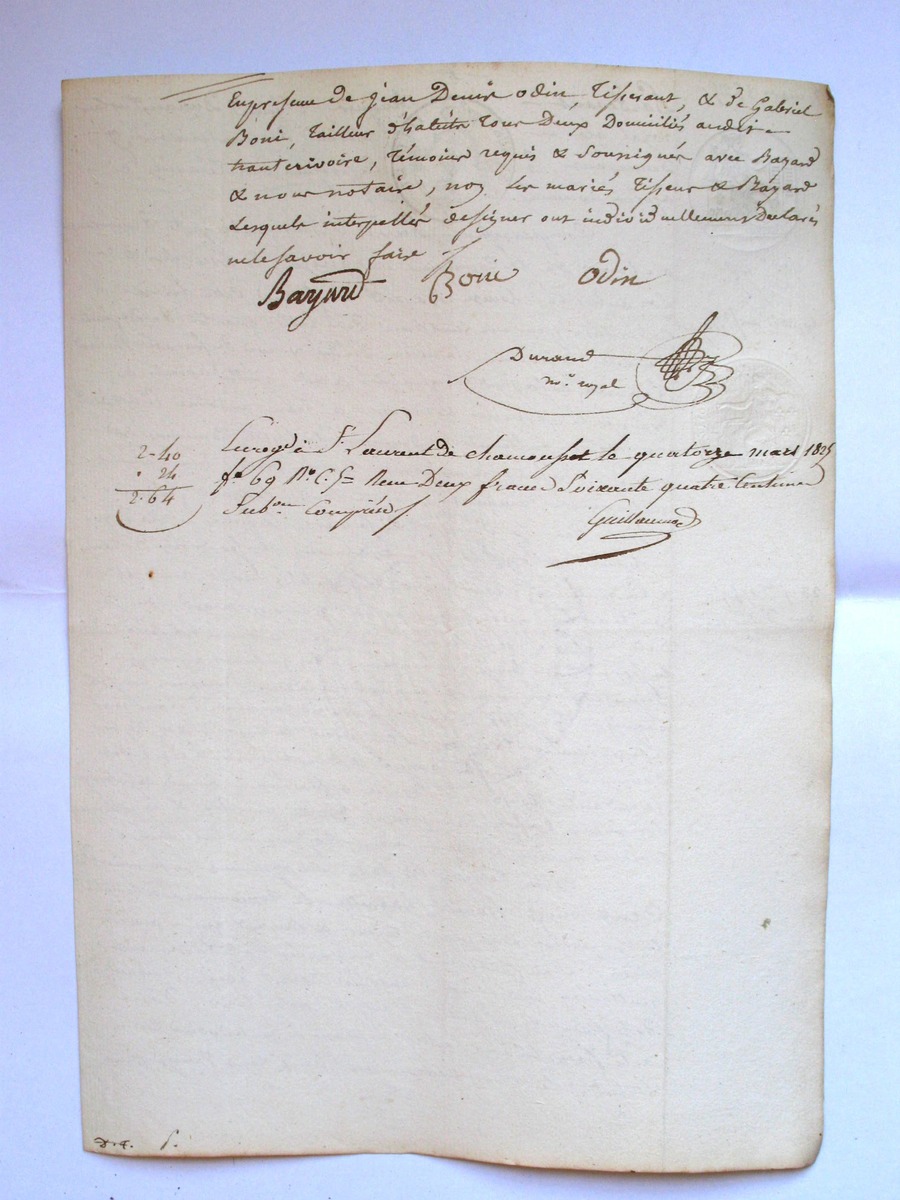 En presence de jean Denis odin Tisserant, & de Gabriel
Boni, Tailleur d'habits Tous Deux Domiciliés audit
hauterivoire, Témoins requis & Soussignés avec Bayard
& nous notaire, non les mariés Tisseur & Bayard
Lesquels interpellés de signer ont individuellement Declarés
ne le savoir faire
Bayard Boni odin
Durand
no.re royal
2-40
. 24
2.64
Enreg.é à S.t Laurent de chamousset le quatorze mars 1825
f.o 69 R.o C. 5.e Reçu Deux francs Soixante quatre Centimes
Sub.on Comprise
Guillaumod